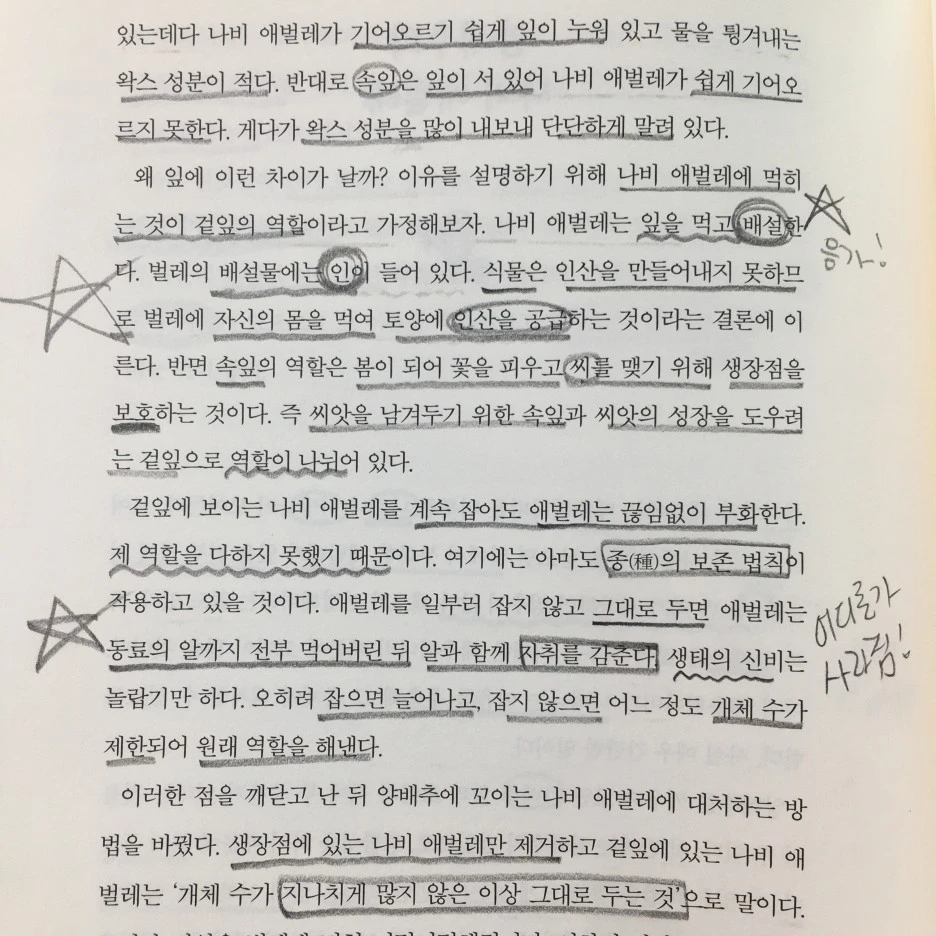 있는데다 나비 애벌레가 기어오르기 쉽게 잎이 누워 있고 물을 튕겨내는
왁스 성분이 적다. 반대로 속잎은 잎이 서 있어 나비 애벌레가 쉽게 기어오
르지 못한다. 게다가 왁스 성분을 많이 내보내 단단하게 말려 있다.
왜 잎에 이런 차이가 날까? 이유를 설명하기 위해 나비 애벌레에 먹히
는 것이 겉잎의 역할이라고 가정해보자. 나비 애벌레는 잎을 먹고 배설한
응가!
다. 벌레의 배설물에는 인이 들어 있다. 식물은 인산을 만들어내지 못하므
로 벌레에 자신의 몸을 먹여 토양에 인산을 공급하는 것이라는 결론에 이
른다. 반면 속잎의 역할은 봄이 되어 꽃을 피우고 씨를 맺기 위해 생장점을
보호하는 것이다. 즉 씨앗을 남겨두기 위한 속잎과 씨앗의 성장을 도우려
는 겉잎으로 역할이 나뉘어 있다.
겉잎에 보이는 나비 애벌레를 계속 잡아도 애벌레는 끊임없이 부화한다.
제 역할을 다하지 못했기 때문이다. 여기에는 아마도 종(種)의 보존 법칙이
작용하고 있을 것이다. 애벌레를 일부러 잡지 않고 그대로 두면 애벌레는
동료의 알까지 전부 먹어버린 뒤 알과 함께 자취를 감춘다. 생태의 신비는
어디론가
사라짐!
놀랍기만 하다. 오히려 잡으면 늘어나고, 잡지 않으면 어느 정도 개체 수가
제한되어 원래 역할을 해낸다.
이러한 점을 깨닫고 난 뒤 양배추에 꼬이는 나비 애벌레에 대처하는 방
법을 바꿨다. 생장점에 있는 나비 애벌레만 제거하고 겉잎에 있는 나비 애
벌레는 '개체 수가 지나치게 많지 않은 이상 그대로 두는 것'으로 말이다.